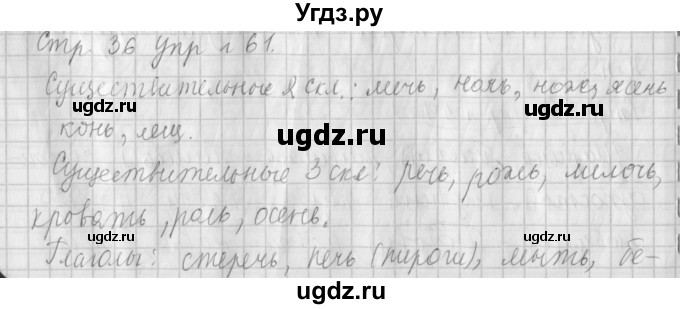 Угдз.ру
Стр. 36 упр. 61.
Существительные 2 скл.: меч, ноль, нож, ясень
конь, лещ.
Существительные 3 скл: речь, рожь, мелочь,
кровать, роль, осень.
Глаголы: стеречь, печь (пироги), мыть, бе-
ugdz.ru
ugdz.ru
ugdz.ru
ugdz.ru
ugdz.ru
ugdz.ru
ugdz.ru
ugdz.ru